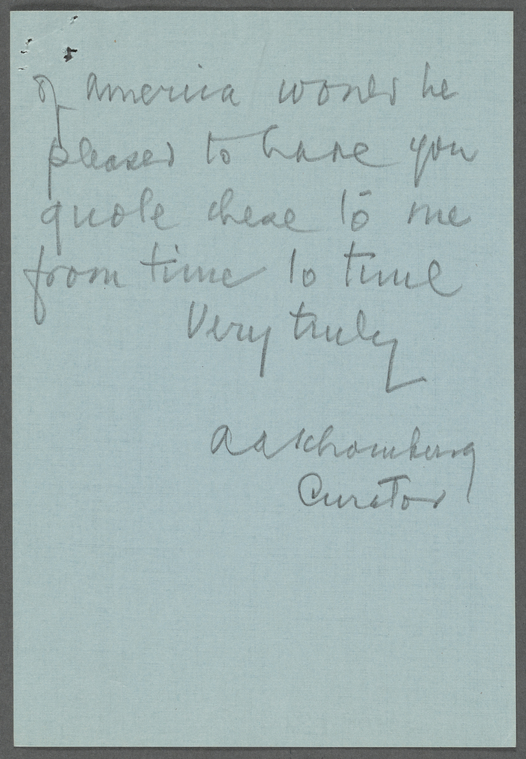 of america would be
pleased to have you
quote these to me
from time to time
Very truly
A A Schomburg
Curator